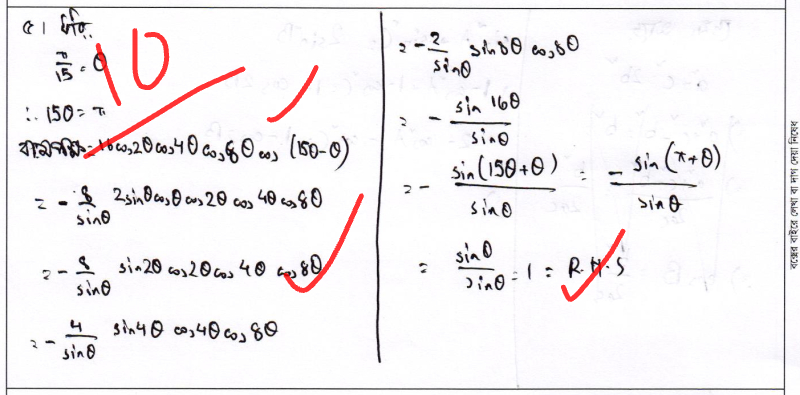 ৫। ধরি,
π/15 = θ
10
∴ 15θ = π
বামপক্ষ = 16 cos2θ cos4θ cos8θ cos (15θ-θ)
= - 8/sinθ 2sinθ cosθ cos2θ cos 4θ cos8θ
= - 8/sinθ sin2θ cos2θ cos 4θ cos8θ
= - 4/sinθ sin4θ cos4θ cos8θ
= - 2/sinθ sin8θ cos8θ
= - sin 16θ/sinθ
= - sin(15θ+θ)/sinθ = - sin(π+θ)/sinθ
= sinθ/sinθ = 1 = R.H.S
বক্সের বাইরে লেখা বা দাগ দেয়া নিষেধ